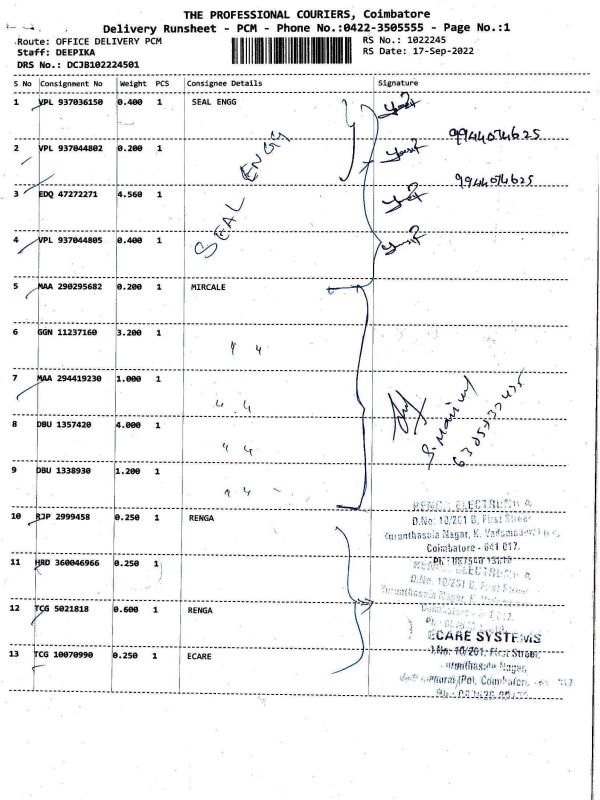 THE PROFESSIONAL COURIERS, Coimbatore
Delivery Runsheet - PCM - Phone No.:0422-3505555 - Page No.:1
Route: OFFICE DELIVERY PCM
RS No.: 1022245
Staff: DEEPIKA
RS Date: 17-Sep-2022
DRS No.: DCJB102224501
S No Consignment No Weight PCS Consignee Details Signature
1 VPL 937036150 0.400 1 SEAL ENGG
9944074625
2 VPL 937044802 0.200 1
SEAL ENGG
9944074625
3 EDQ 47272271 4.560 1
4 VPL 937044805 0.400 1
5 MAA 290295682 0.200 1 MIRCALE
6 GGN 11237160 3.200 1
7 MAA 294419230 1.000 1
8 DBU 1357420 4.000 1
9 DBU 1338930 1.200 1
10 RJP 2999458 0.250 1 RENGA
D.No: 10/201 D, First Street
Coimbatore - 641 017.
11 HRD 360046966 0.250 1
12 TCG 5021818 0.600 1 RENGA
ECARE SYSTEMS
D.No: 10/201, First Street,
13 TCG 10070990 0.250 1 ECARE